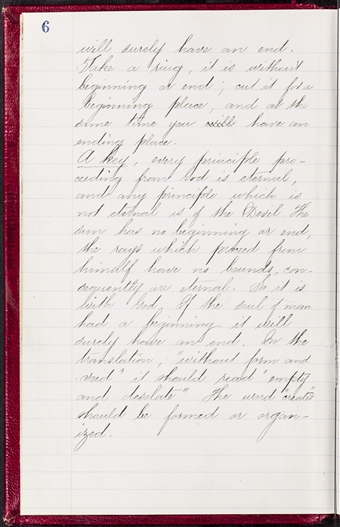 6
will surely have an end.
Take a ring, it is without
beginning or end; cut it for a
beginning place, and at the
same time you will have an
ending place.
A key, every principle pro-
ceeding from God is eternal,
and any principle which is
not eternal is of the Devil. The
sun has no beginning or end,
the rays which proceed from
himself have no bounds, con-
sequently are eternal. So it is
with God. If the soul of man
had a beginning it will
surely have an end. In the
translation, "without form and
void" it should read "empty
and desolate" The word "created"
should be formed or organ-
ized.